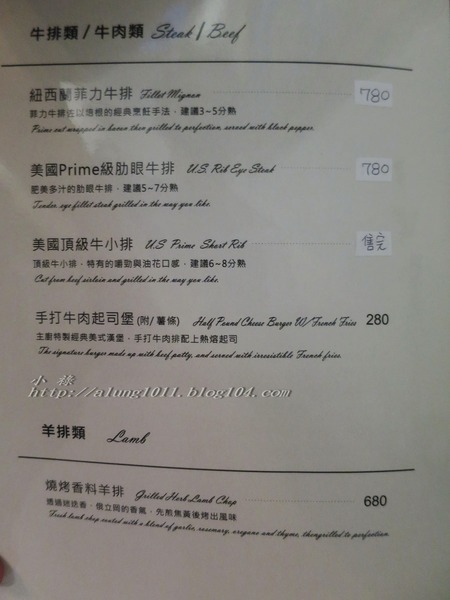 牛排類 / 牛肉類 Steak / Beef
紐西蘭菲力牛排 Fillet Mignon 780
菲力牛排佐以培根的經典烹飪手法，建議3~5分熟
Prime cut wrapped in bacon then grilled to perfection, served with black pepper.
美國Prime級肋眼牛排 U.S. Rib Eye Steak 780
肥美多汁的肋眼牛排，建議5~7分熟
Tender, eye fillet steak grilled in the way you like.
美國頂級牛小排 U.S Prime Short Rib 售完
頂級牛小排，特有的嚼勁與油花口感，建議6~8分熟
Cut from beef sirloin and grilled in the way you like.
手打牛肉起司堡 (附/ 薯條) Half Pound Cheese Burger W/ French Fries 280
主廚特製經典美式漢堡，手打牛肉排配上熱熔起司
The signature burger made up with beef patty, and served with irresistible French fries.
小 綠
http://alung1011.blog104.com/
羊排類 Lamb
燒烤香料羊排 Grilled Herb Lamb Chop 680
透過迷迭香、俄立岡的香氣，先煎焦黃後烤出風味
Fresh lamb chop coated with a blend of garlic, rosemary, oregano and thyme, then grilled to perfection.